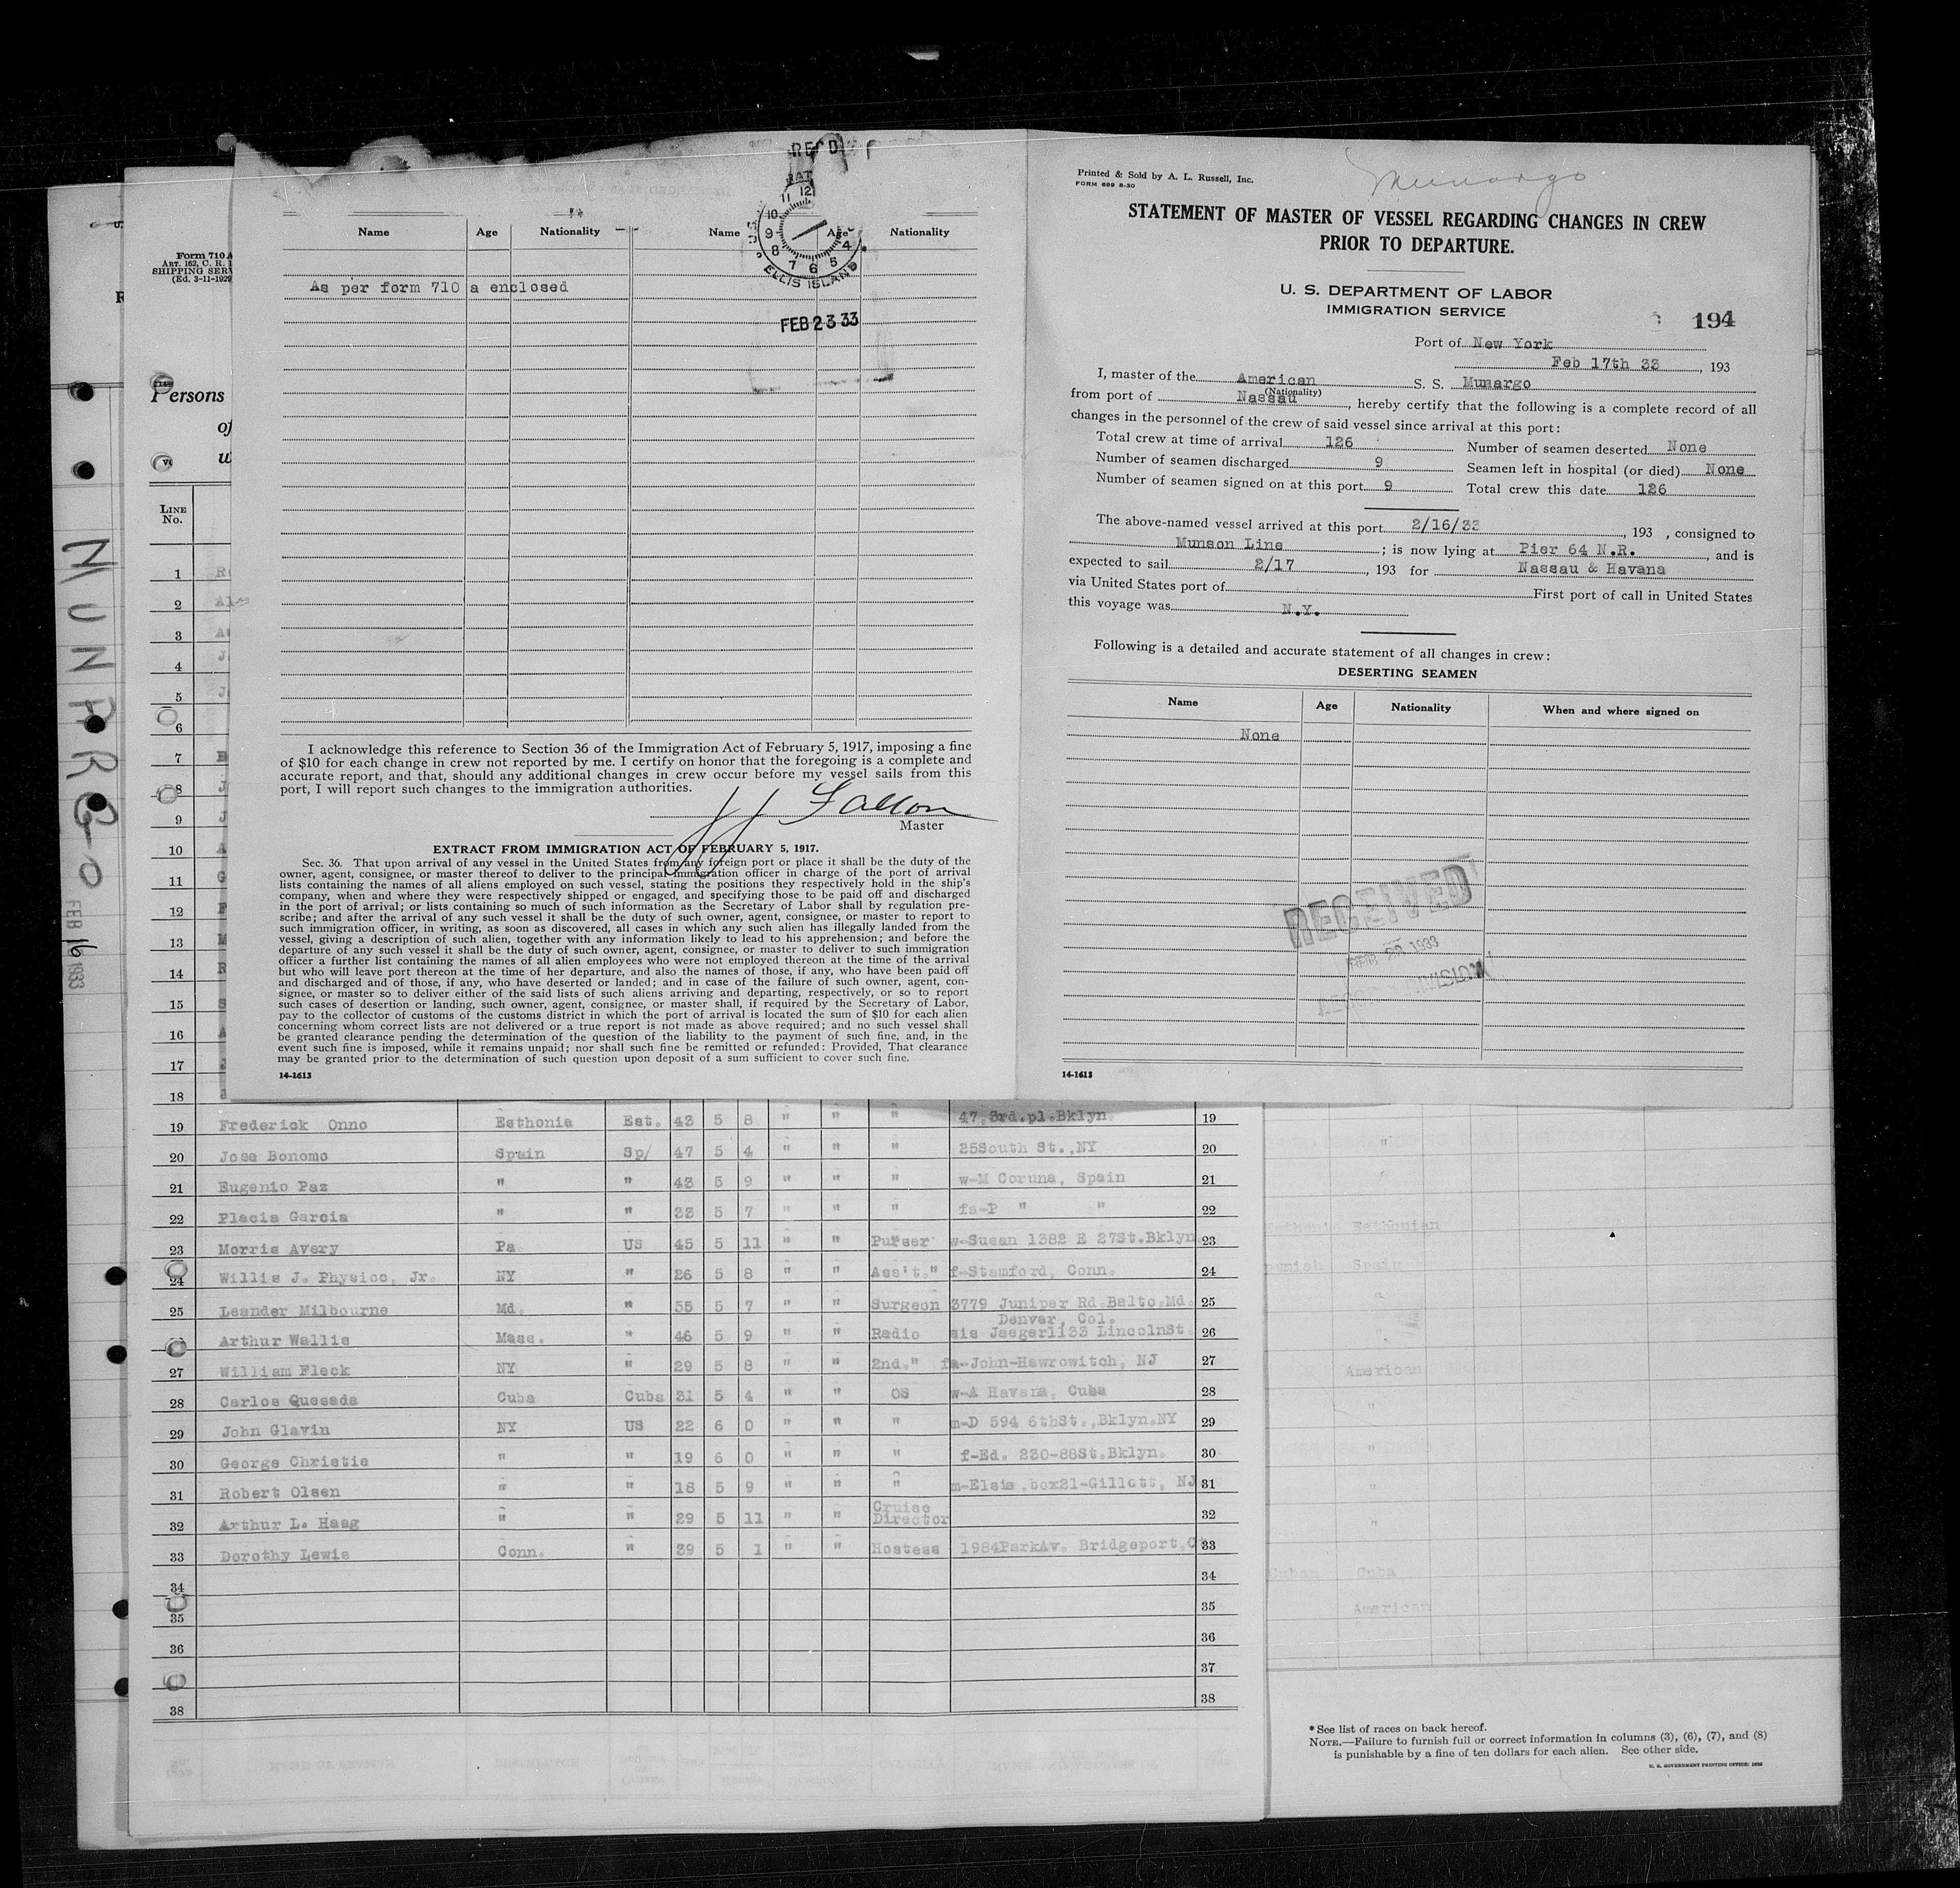 MUNARGO
FEB 16 1933
Form 710 A
ART. 162, C. R.
SHIPPING SERV
(Ed. 3-11-1929
Persons
of
w
LINE
No.
1
2
3
4
5
6
7
8
9
10
11
12
13
14
15
16
17
18
REC'D
Name Age Nationality Name Age Nationality
12
11
10
9
8
7
6
5
4
ELLIS ISLAND
As per form 710 a enclosed
FEB 23 33
I acknowledge this reference to Section 36 of the Immigration Act of February 5, 1917, imposing a fine
of $10 for each change in crew not reported by me. I certify on honor that the foregoing is a complete and
accurate report, and that, should any additional changes in crew occur before my vessel sails from this
port, I will report such changes to the immigration authorities.
JJ Fallon
Master
EXTRACT FROM IMMIGRATION ACT OF FEBRUARY 5, 1917.
Sec. 36. That upon arrival of any vessel in the United States from any foreign port or place it shall be the duty of the
owner, agent, consignee, or master thereof to deliver to the principal immigration officer in charge of the port of arrival
lists containing the names of all aliens employed on such vessel, stating the positions they respectively hold in the ship's
company, when and where they were respectively shipped or engaged, and specifying those to be paid off and discharged
in the port of arrival; or lists containing so much of such information as the Secretary of Labor shall by regulation pre-
scribe; and after the arrival of any such vessel it shall be the duty of such owner, agent, consignee, or master to report to
such immigration officer, in writing, as soon as discovered, all cases in which any such alien has illegally landed from the
vessel, giving a description of such alien, together with any information likely to lead to his apprehension; and before the
departure of any such vessel it shall be the duty of such owner, agent, consignee, or master to deliver to such immigration
officer a further list containing the names of all alien employees who were not employed thereon at the time of the arrival
but who will leave port thereon at the time of her departure, and also the names of those, if any, who have been paid off
and discharged and of those, if any, who have deserted or landed; and in case of the failure of such owner, agent, con-
signee, or master so to deliver either of the said lists of such aliens arriving and departing, respectively, or so to report
such cases of desertion or landing, such owner, agent, consignee, or master shall, if required by the Secretary of Labor,
pay to the collector of customs of the customs district in which the port of arrival is located the sum of $10 for each alien
concerning whom correct lists are not delivered or a true report is not made as above required; and no such vessel shall
be granted clearance pending the determination of the question of the liability to the payment of such fine, and, in the
event such fine is imposed, while it remains unpaid; nor shall such fine be remitted or refunded: Provided, That clearance
may be granted prior to the determination of such question upon deposit of a sum sufficient to cover such fine.
14-1613
Munargo
Printed & Sold by A. L. Russell, Inc.
FORM 689 8-30
STATEMENT OF MASTER OF VESSEL REGARDING CHANGES IN CREW
PRIOR TO DEPARTURE.
U. S. DEPARTMENT OF LABOR
IMMIGRATION SERVICE
194
Port of New York
Feb 17th 33, 193
I, master of the American S. S. Munargo
(Nationality)
from port of Nassau, hereby certify that the following is a complete record of all
changes in the personnel of the crew of said vessel since arrival at this port:
Total crew at time of arrival 126 Number of seamen deserted None
Number of seamen discharged 9 Seamen left in hospital (or died) None
Number of seamen signed on at this port 9 Total crew this date 126
The above-named vessel arrived at this port 2/16/33, 193 , consigned to
Munson Line; is now lying at Pier 64 N.R., and is
expected to sail 2/17, 193 for Nassau & Havana
via United States port of First port of call in United States
this voyage was N.Y.
Following is a detailed and accurate statement of all changes in crew:
DESERTING SEAMEN
Name Age Nationality When and where signed on
None
RECEIVED
1933
DIVISION
14-1613
19 Frederick Onno Esthonia Est. 43 5 8 " " " 47 3rd.pl.Bklyn 19
20 Jose Bonomo Spain Sp/ 47 5 4 " " " 25South St.,NY 20
21 Eugenio Paz " " 43 5 9 " " " w-M Coruna, Spain 21
22 Placia Garcia " " 23 5 7 " " " fa-P " " 22
23 Morris Avery Pa US 45 5 11 " " Purser w-Susan 1382 E 27St.Bklyn 23
24 Willis J. Physioc, Jr. NY " 26 5 8 " " Ass't." f-Stamford, Conn. 24
25 Leander Milbourne Md. " 55 5 7 " " Surgeon 3779 Juniper Rd.Balto.Md. 25
Denver, Col.
Arthur Wallis Mass. " 46 5 9 " " Radio sis Jaeger1133 LincolnSt. 26
27 William Fleck NY " 29 5 8 " " 2nd." fa-John-Hawrowitch, NJ 27
28 Carlos Quesada Cuba Cuba 31 5 4 " " OS w-A Havana, Cuba 28
29 John Glavin NY US 22 6 0 " " " m-D 594 6thSt.,Bklyn.NY 29
30 George Christie " " 19 6 0 " " " f-Ed. 230-88St.Bklyn. 30
31 Robert Olsen " " 18 5 9 " " " m-Elsie,box21-Gillett, NJ 31
32 Arthur L. Haag " " 29 5 11 " " Cruise Director 32
33 Dorothy Lewis Conn. " 39 5 1 " " Hostess 1984ParkAv. Bridgeport,C 33
34 34
35 35
36 36
37
38 38
Esthonian
Spain
"
"
American
"
"
"
"
Cuba
American
*See list of races on back hereof.
NOTE.—Failure to furnish full or correct information in columns (3), (6), (7), and (8)
is punishable by a fine of ten dollars for each alien. See other side.
U. S. GOVERNMENT PRINTING OFFICE: